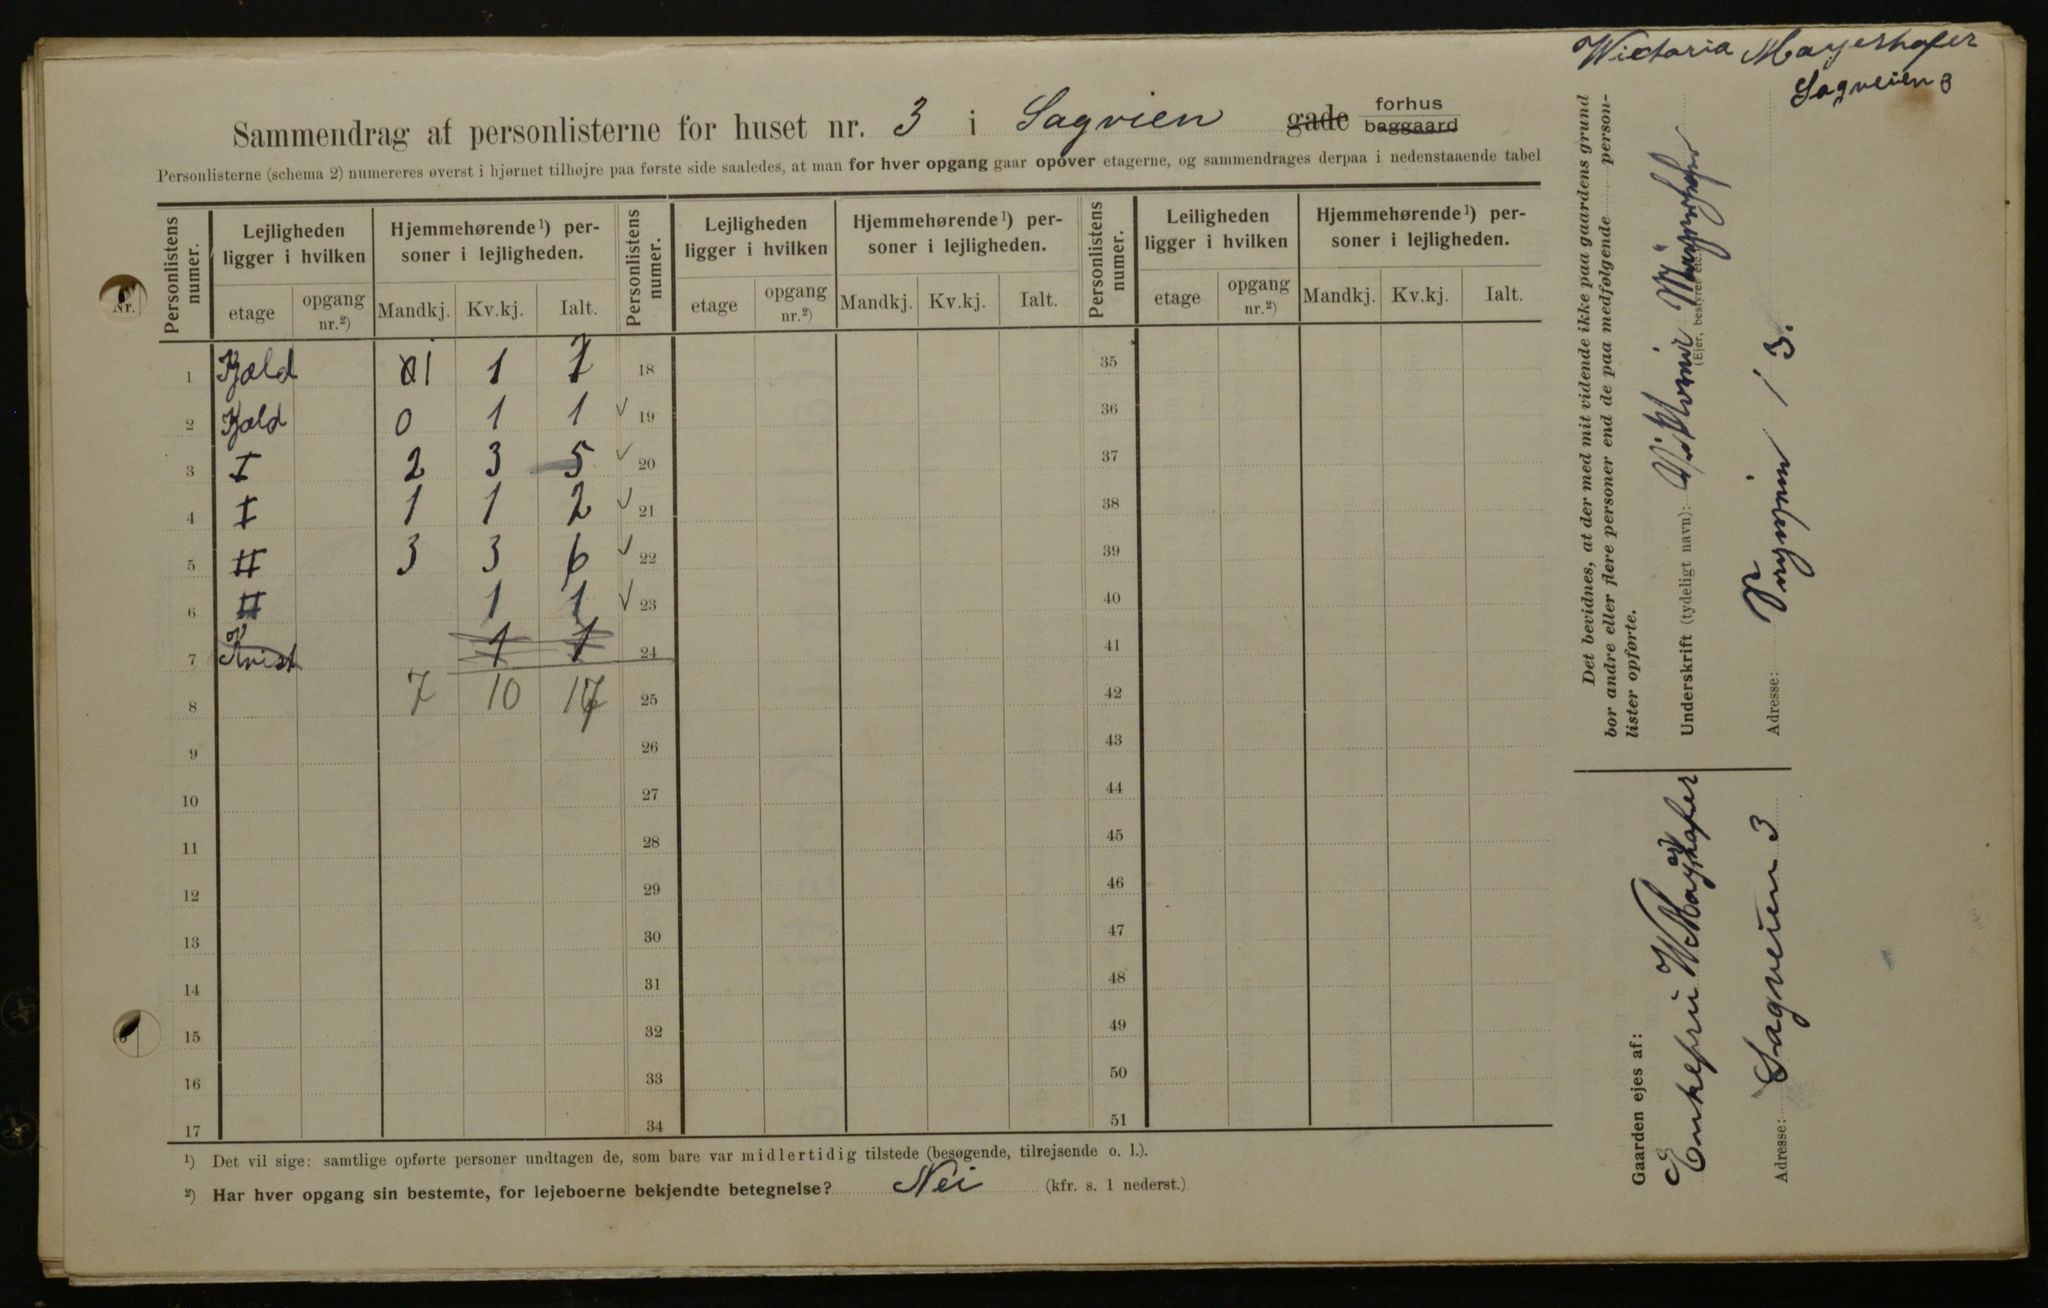 Wictoria Mayerhofer
Sagveien 3
Sammendrag af personlisterne for huset nr. 3 i Sagvien gade forhus baggaard
Personlisterne (schema 2) numereres øverst i hjørnet tilhøjre paa første side saaledes, at man for hver opgang gaar opover etagerne, og sammendrages derpaa i nedenstaaende tabel
Personlistens numer. Lejligheden ligger i hvilken Hjemmehørende ¹) personer i lejligheden. Personlistens numer. Lejligheden ligger i hvilken Hjemmehørende ¹) personer i lejligheden. Personlistens numer. Leiligheden ligger i hvilken Hjemmehørende ¹) personer i lejligheden.
etage opgang nr.²) Mandkj. Kv.kj. Ialt. etage opgang nr.²) Mandkj. Kv.kj. Ialt. etage opgang nr.²) Mandkj. Kv.kj. Ialt.
Nr.
1 Kjæld 1 1 2 18 35
2 Kjæld 0 1 1 19 36
3 I 2 3 5 20 37
4 I 1 1 2 21 38
5 II 3 3 6 22 39
6 II 1 1 23 40
7 Kvist 1 1 24 41
8 7 10 17 25 42
9 26 43
10 27 44
11 28 45
12 29 46
13 30 47
14 31 48
15 32 49
16 33 50
17 34 51
¹) Det vil sige: samtlige opførte personer undtagen de, som bare var midlertidig tilstede (besøgende, tilrejsende o. l.).
²) Har hver opgang sin bestemte, for lejeboerne bekjendte betegnelse? Nei (kfr. s. 1 nederst.)
Det bevidnes, at der med mit vidende ikke paa gaardens grund
bor andre eller flere personer end de paa medfølgende personlister opførte.
Underskrift (tydeligt navn): Viktoria Mayerhofer
(Ejer, bestyrer etc.)
Adresse: Sagveien 3.
Gaarden ejes af:
Enkefru W Mayerhofer
Adresse: Sagveien 3